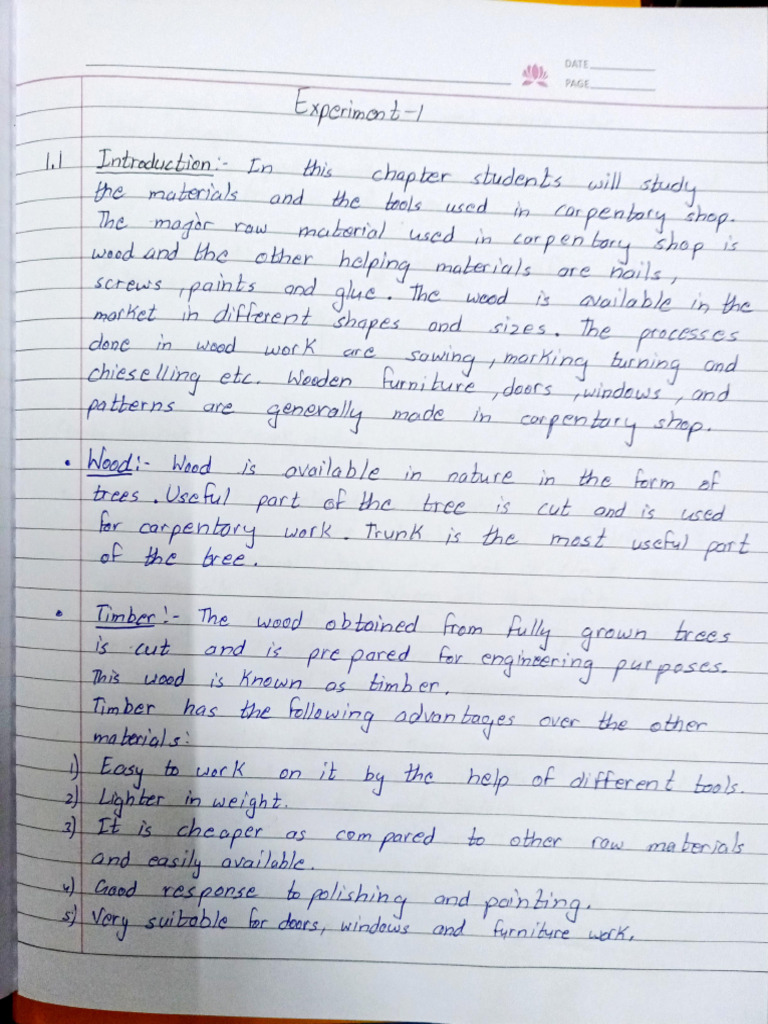 DATE
PAGE
Experiment-1
1.1 Introduction:- In this chapter students will study
the materials and the tools used in carpentory shop.
The magor raw material used in carpentory shop is
wood and the other helping materials are nails,
screws, paints and glue. The wood is available in the
market in different shapes and sizes. The processes
done in wood work are sawing, marking turning and
chieselling etc. Wooden furniture, doors, windows, and
patterns are generally made in carpentary shop.
• Wood:- Wood is available in nature in the form of
trees. Useful part of the tree is cut and is used
for carpentory work. Trunk is the most useful part
of the tree.
• Timber:- The wood obtained from fully grown trees
is cut and is prepared for engineering purposes.
This wood is known as timber.
Timber has the following advantages over the other
materials:
1) Easy to work on it by the help of different tools.
2) Lighter in weight.
3) It is cheaper as compared to other raw materials
and easily available.
4) Good response to polishing and painting.
5) Very suitable for doors, windows and furniture work.